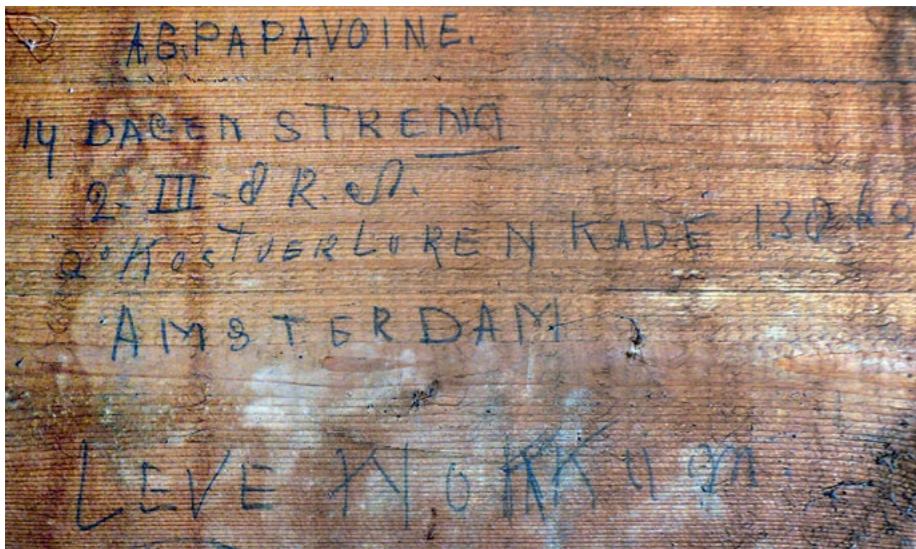 A.G. PAPAVOINE.
14 DAGEN STRENG
2-III-8 R.S.
2e KOSTVERLOREN KADE 130 hs
AMSTERDAM
LEVE